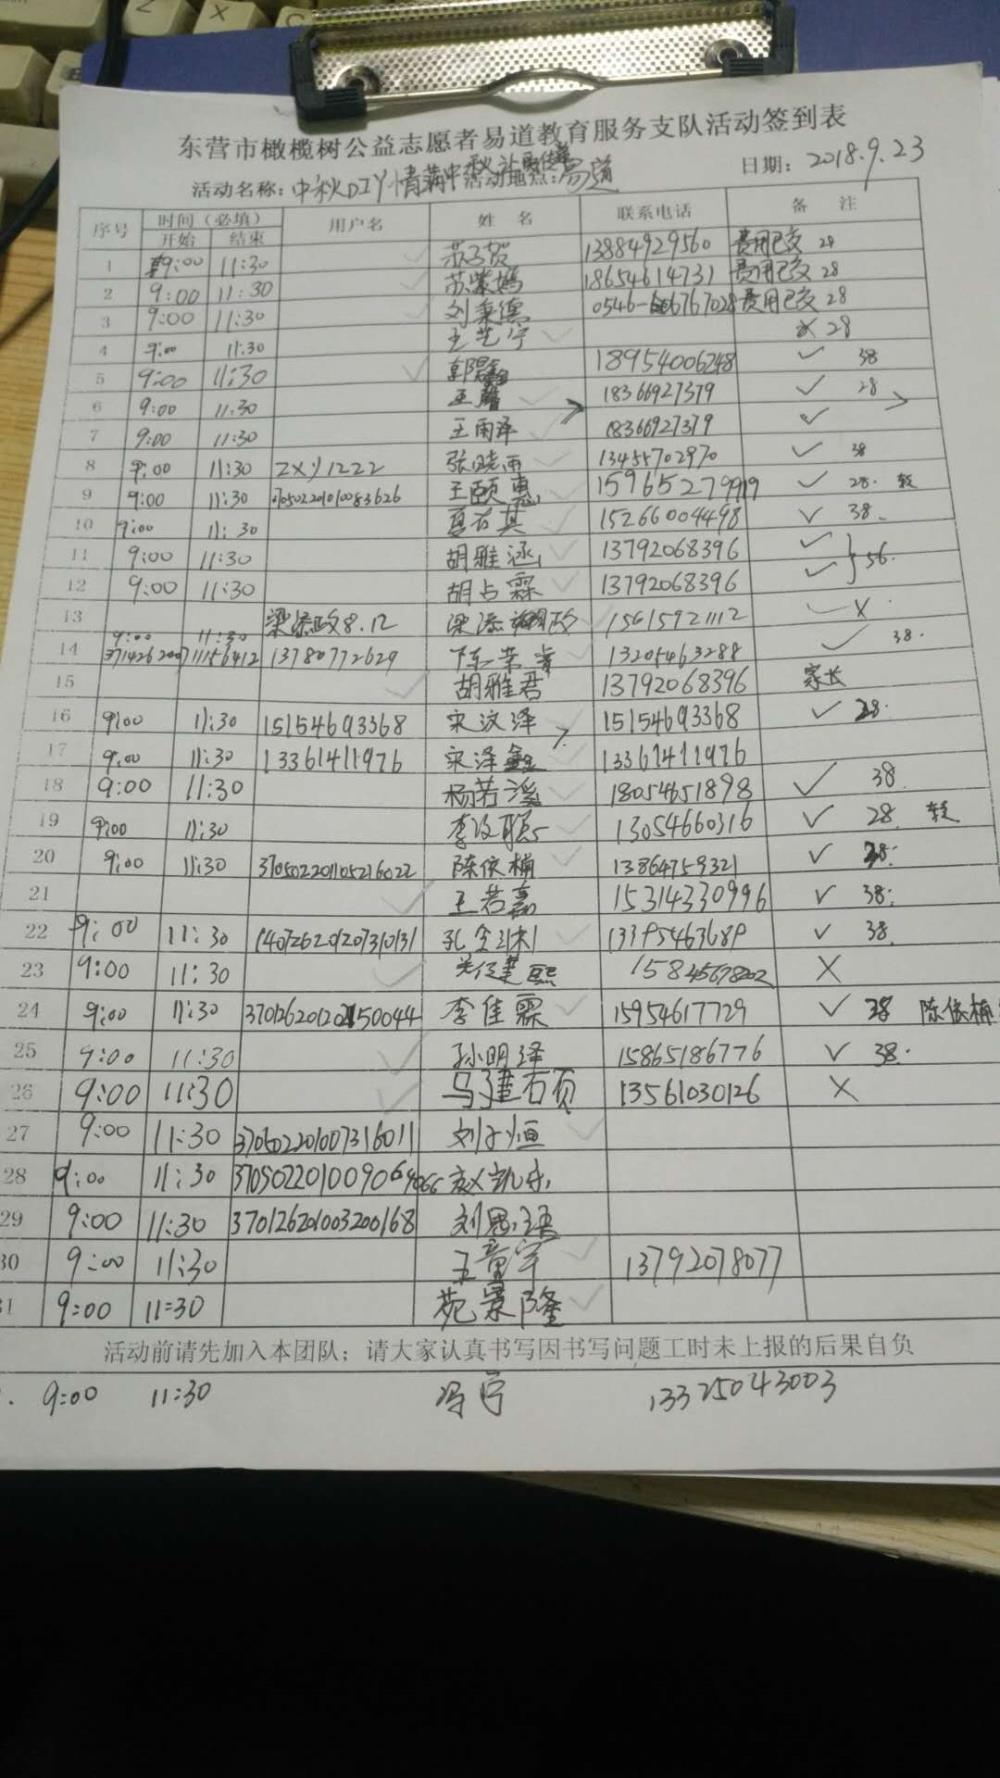 东营市橄榄树公益志愿者易道教育服务支队活动签到表
活动名称：中秋DIY情满中秋 活动地点：易道 日期：2018.9.23
序号 时间（必填） 用户名 姓名 联系电话 备注
开始 结束
1 9:00 11:30 苏子贺 13884929560 费用已交 28
2 9:00 11:30 苏紫嫣 18654614731 费用已交 28
3 9:00 11:30 刘秉德 费用已交 28
4 9:00 11:30 王艺宁 × 28
5 9:00 11:30 18954006248 ✓ 38
6 9:00 11:30 18366927379 ✓ 28
7 9:00 11:30 王雨泽 18366927379 ✓
8 9:00 11:30 ZXY1222 张晓雨 13455702970 ✓ 38
9 9:00 11:30 王颐惠 ✓ 28.
10 9:00 11:30 15266004498 ✓ 38.
11 9:00 11:30 胡雅涵 13792068396 ✓
12 9:00 11:30 胡占霖 13792068396 ✓ } 56.
13 梁添政8.12 梁添政 15615921112 ×
14 9:00 11:30 13780772629 13205463288 ✓ 38.
15 胡雅君 13792068396 家长
16 9:00 11:30 15154693368 宋汶泽 15154693368 ✓ 28.
17 9:00 11:30 13361411976 宋泽鑫 13361411976
18 9:00 11:30 杨若溪 18054651898 ✓ 38.
19 9:00 11:30 13054660316 ✓ 28.
20 9:00 11:30 370502201105216022 陈依楠 13864759321 ✓ 38.
21 王若嘉 15314330996 ✓ 38.
22 9:00 11:30 140726201207310131 ✓ 38.
23 9:00 11:30 ×
24 9:00 11:30 李佳霖 15954617729 ✓ 38 陈依楠
25 9:00 11:30 孙明泽 15865186776 ✓ 38.
26 9:00 11:30 13561030126 ×
27 9:00 11:30 370502201007316011 刘子恒
28 9:00 11:30
29 9:00 11:30 370126201003200168 刘思语
30 9:00 11:30 王童宇 13792078077
31 9:00 11:30 苑景隆
活动前请先加入本团队；请大家认真书写因书写问题工时未上报的后果自负
9:00 11:30 冯宁 13325043003